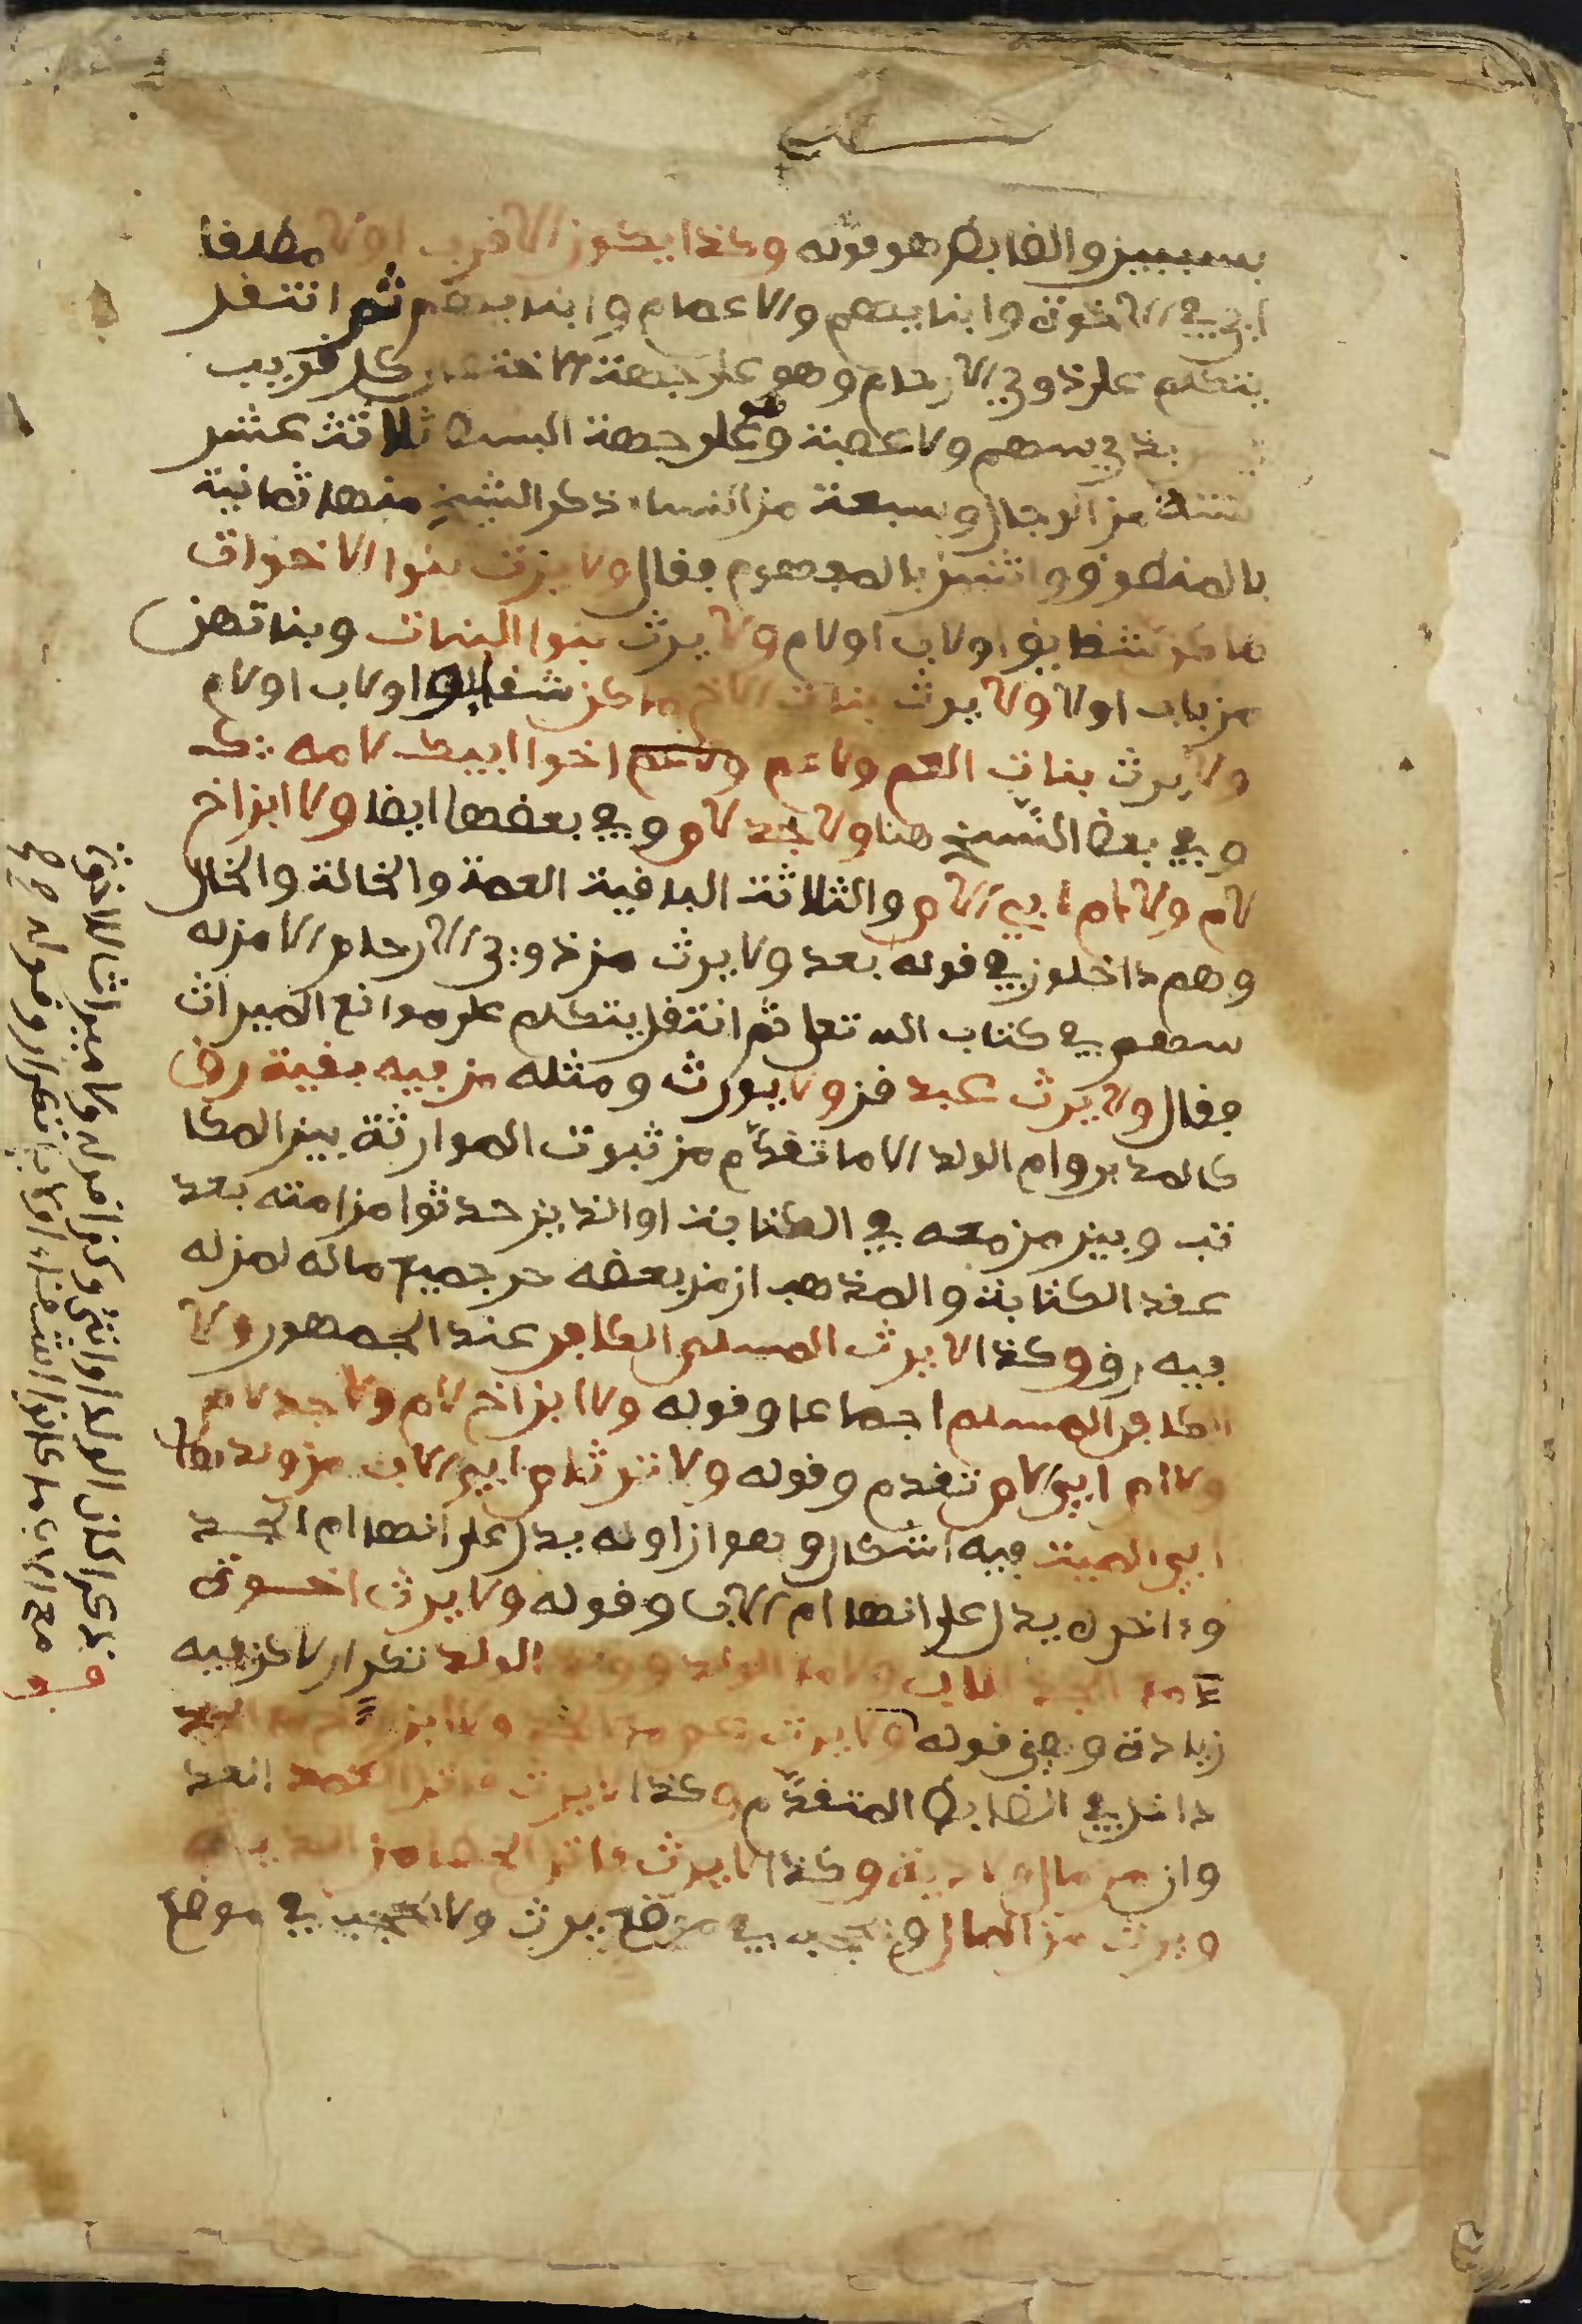 بسببين والضابط هو قوله وكذا يكون الاقرب اولا مطلقا
اي في الاخوة وابنايهم والاعمام وابنايهم ثم انتقل
يتكلم على ذوي الارحام وهو على جهة الاختصار كل قريب
بذي سهم ولا عصبة وهو على جهة البسط ثلاثة عشر
ستة من الرجال وسبعة من النساء ذكر الشيخ منها ثمانية
بالمنطوق واثنين بالمفهوم فقال ولا يرث بنوا الاخوات
ما كن شقايق او لاب او لام ولا يرث بنوا البنات وبناتهن
من باب اولا ولا يرث بنات الاخ ما كن شقايق او لاب او لام
ولا يرث بنات العم ولا عم اخوا ابيك لامه
وفي بعض النسخ هنا ولا جد لام وفي بعضها ايضا ولا ابن اخ
لام ولا ام ابي الام والثلاثة الباقية العمة والخالة والخال
وهم داخلون في قوله بعد ولا يرث من ذوي الارحام الا من له
سهم في كتاب الله تعلى ثم انتقل يتكلم على موانع الميراث
فقال ولا يرث عبد قن ولا يورث ومثله من فيه بقية رق
كالمدبر وام الولد الا ما تقدم من ثبوت الموارثة بين المكا
تب وبين من معه في الكتابة او الذين حدثوا من امته بعد
عقد الكتابة والمذهب ان من بعضه حر جميع ماله لمن له
فيه رق وكذا لا يرث المسلم الكافر عند الجمهور ولا
الكافر المسلم اجماعا وقوله ولا ابن اخ لام ولا جد لام
ولا ام ابي الام تقدم وقوله ولا ترث ام ابي الاب مع ولدها
ابي الميت فيه اشكال وهو ان اوله يدل على انها ام الجد
وءاخره يدل على انها ام الاب وقوله ولا يرث اخوة
لام مع الجد للاب ولا مع الولد وولد الولد تكرار لاكن فيه
زيادة وهي قوله ولا يرث عم مع الجد ولا ابن اخ مع الجد
داخل في الضابط المتقدم وكذا لا يرث قاتل العمد
من مال ولا دية وكذا لا يرث قاتل الخطا من الدية
ويرث من المال في موضع يرث ولا يحجب في موضع
ذكرا كان الولد او انثى وكذا قوله ولا ميراث للاخوة
مع الاب ما كانوا اشقاء او لاب تكرار وقوله